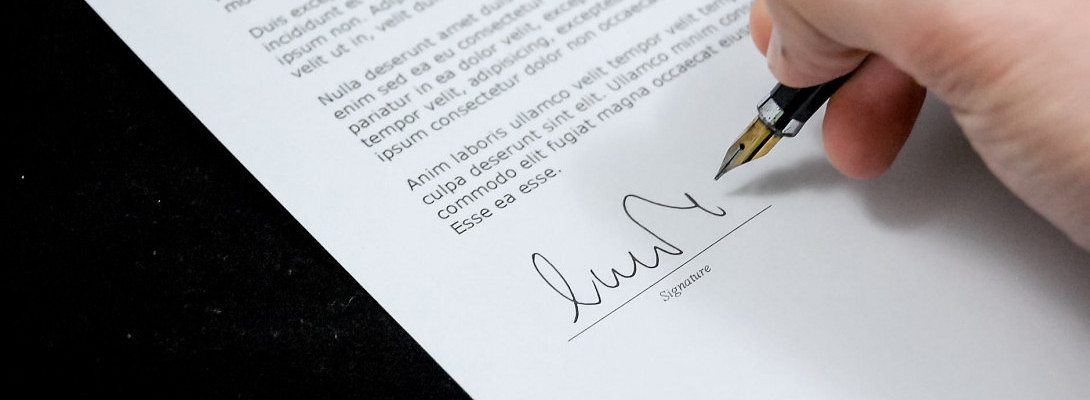 Duis exce
incididunt et
ipsum non. Adip
velit ut in, velit duis
Nulla deserunt amet duis
enim sed ea eu consectetur
pariatur in ea dolor velit, excep
tempor velit, adipisicing, excepteu
ipsum consectetur dolor non occaecat
Anim laboris ullamco velit tempor velit temp
culpa deserunt sint elit. Ullamco minim cons
commodo elit fugiat magna occaecat eius
Esse ea esse.
Signature